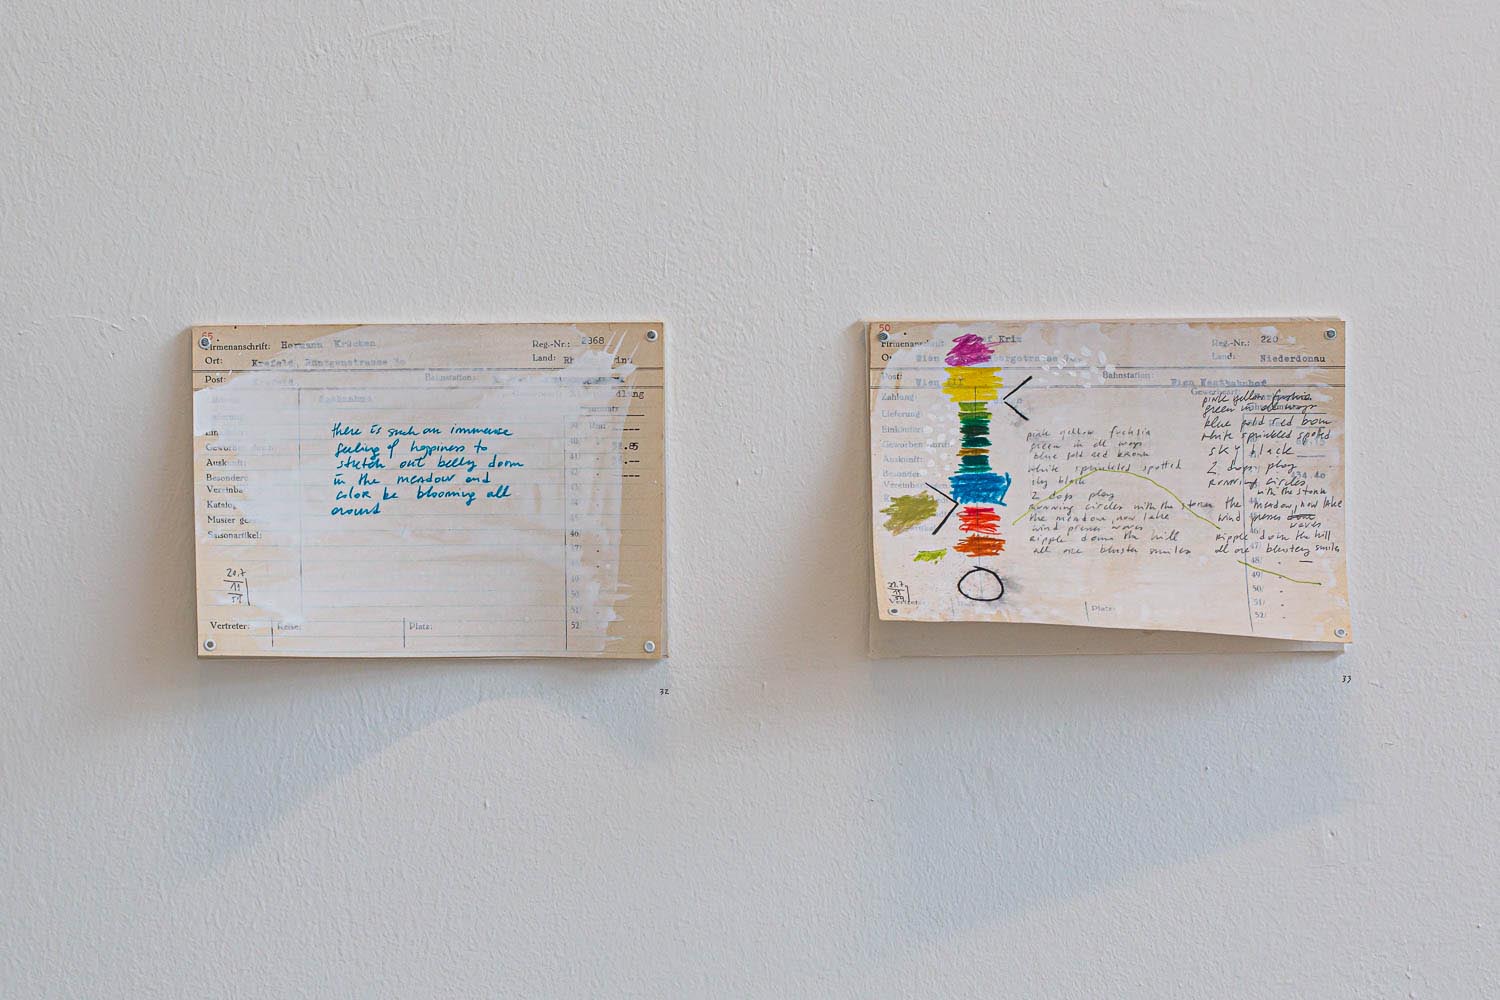 Firmenanschrift: Hermann Krücken
Reg.-Nr.: 2368
Ort: Krefeld, Rüntgenstrasse 30
Land:
Post:
Bahnstation:
there is such an immense
feeling of happiness to
stretch out belly down
in the meadow and
color be blooming all
around
Auskunft:
Besondere
Vereinba
Katalog
Muster ge
Saisonartikel:
46
47
48
49
50
51/
52
20,7
Vertreter: Reise: Platz:
32
50
Firmenanschrift: Kriz
Reg.-Nr.: 220
Ort: Wien
Land: Niederdonau
Post: Wien
Bahnstation: Wien Westbahnhof
Zahlung:
Lieferung:
Einkäufer:
Auskunft:
Besonder
pink yellow fuchsia
green in all ways
blue gold red brown
white sprinkled spotted
sky black
2 dogs play
running circles with the storm
the meadow, now lake
wind presses waves
ripple down the hill
all one bluster smiles
pink yellow fuchsia
green in all ways
blue gold red brown
white sprinkled spotted
sky black
2 dogs play
running circles
with the storm
the meadow, now lake
wind presses down
waves
ripple down the hill
all one blustery smiles
46
47/
48/
49/
50/
51/
52/
Vertreter: Platz:
33